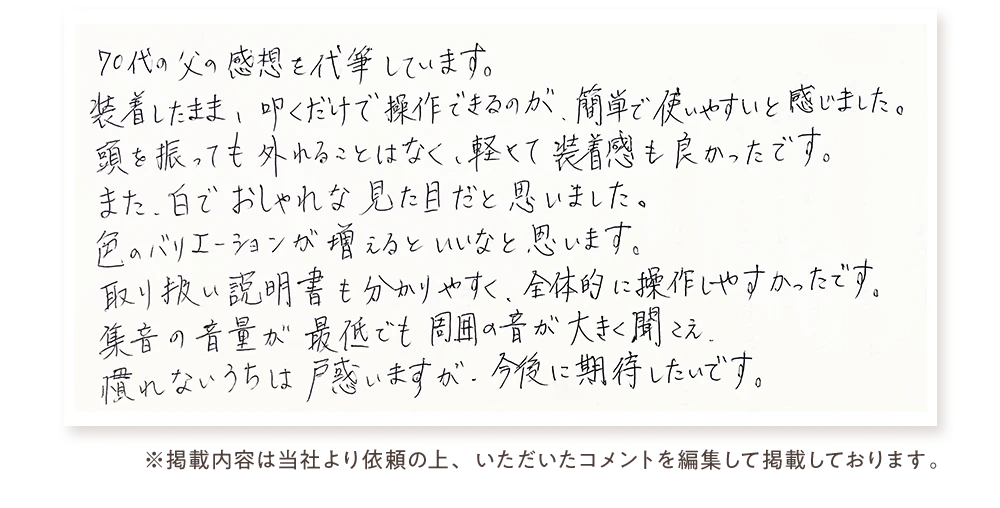 70代の父の感想を代筆しています。
装着したまま、叩くだけで操作できるのが、簡単で使いやすいと感じました。
頭を振っても外れることはなく、軽くて装着感も良かったです。
また、白でおしゃれな見た目だと思いました。
色のバリエーションが増えるといいなと思います。
取り扱い説明書も分かりやすく、全体的に操作しやすかったです。
集音の音量が最低でも周囲の音が大きく聞こえ、
慣れないうちは戸惑いますが、今後に期待したいです。
※掲載内容は当社より依頼の上、いただいたコメントを編集して掲載しております。